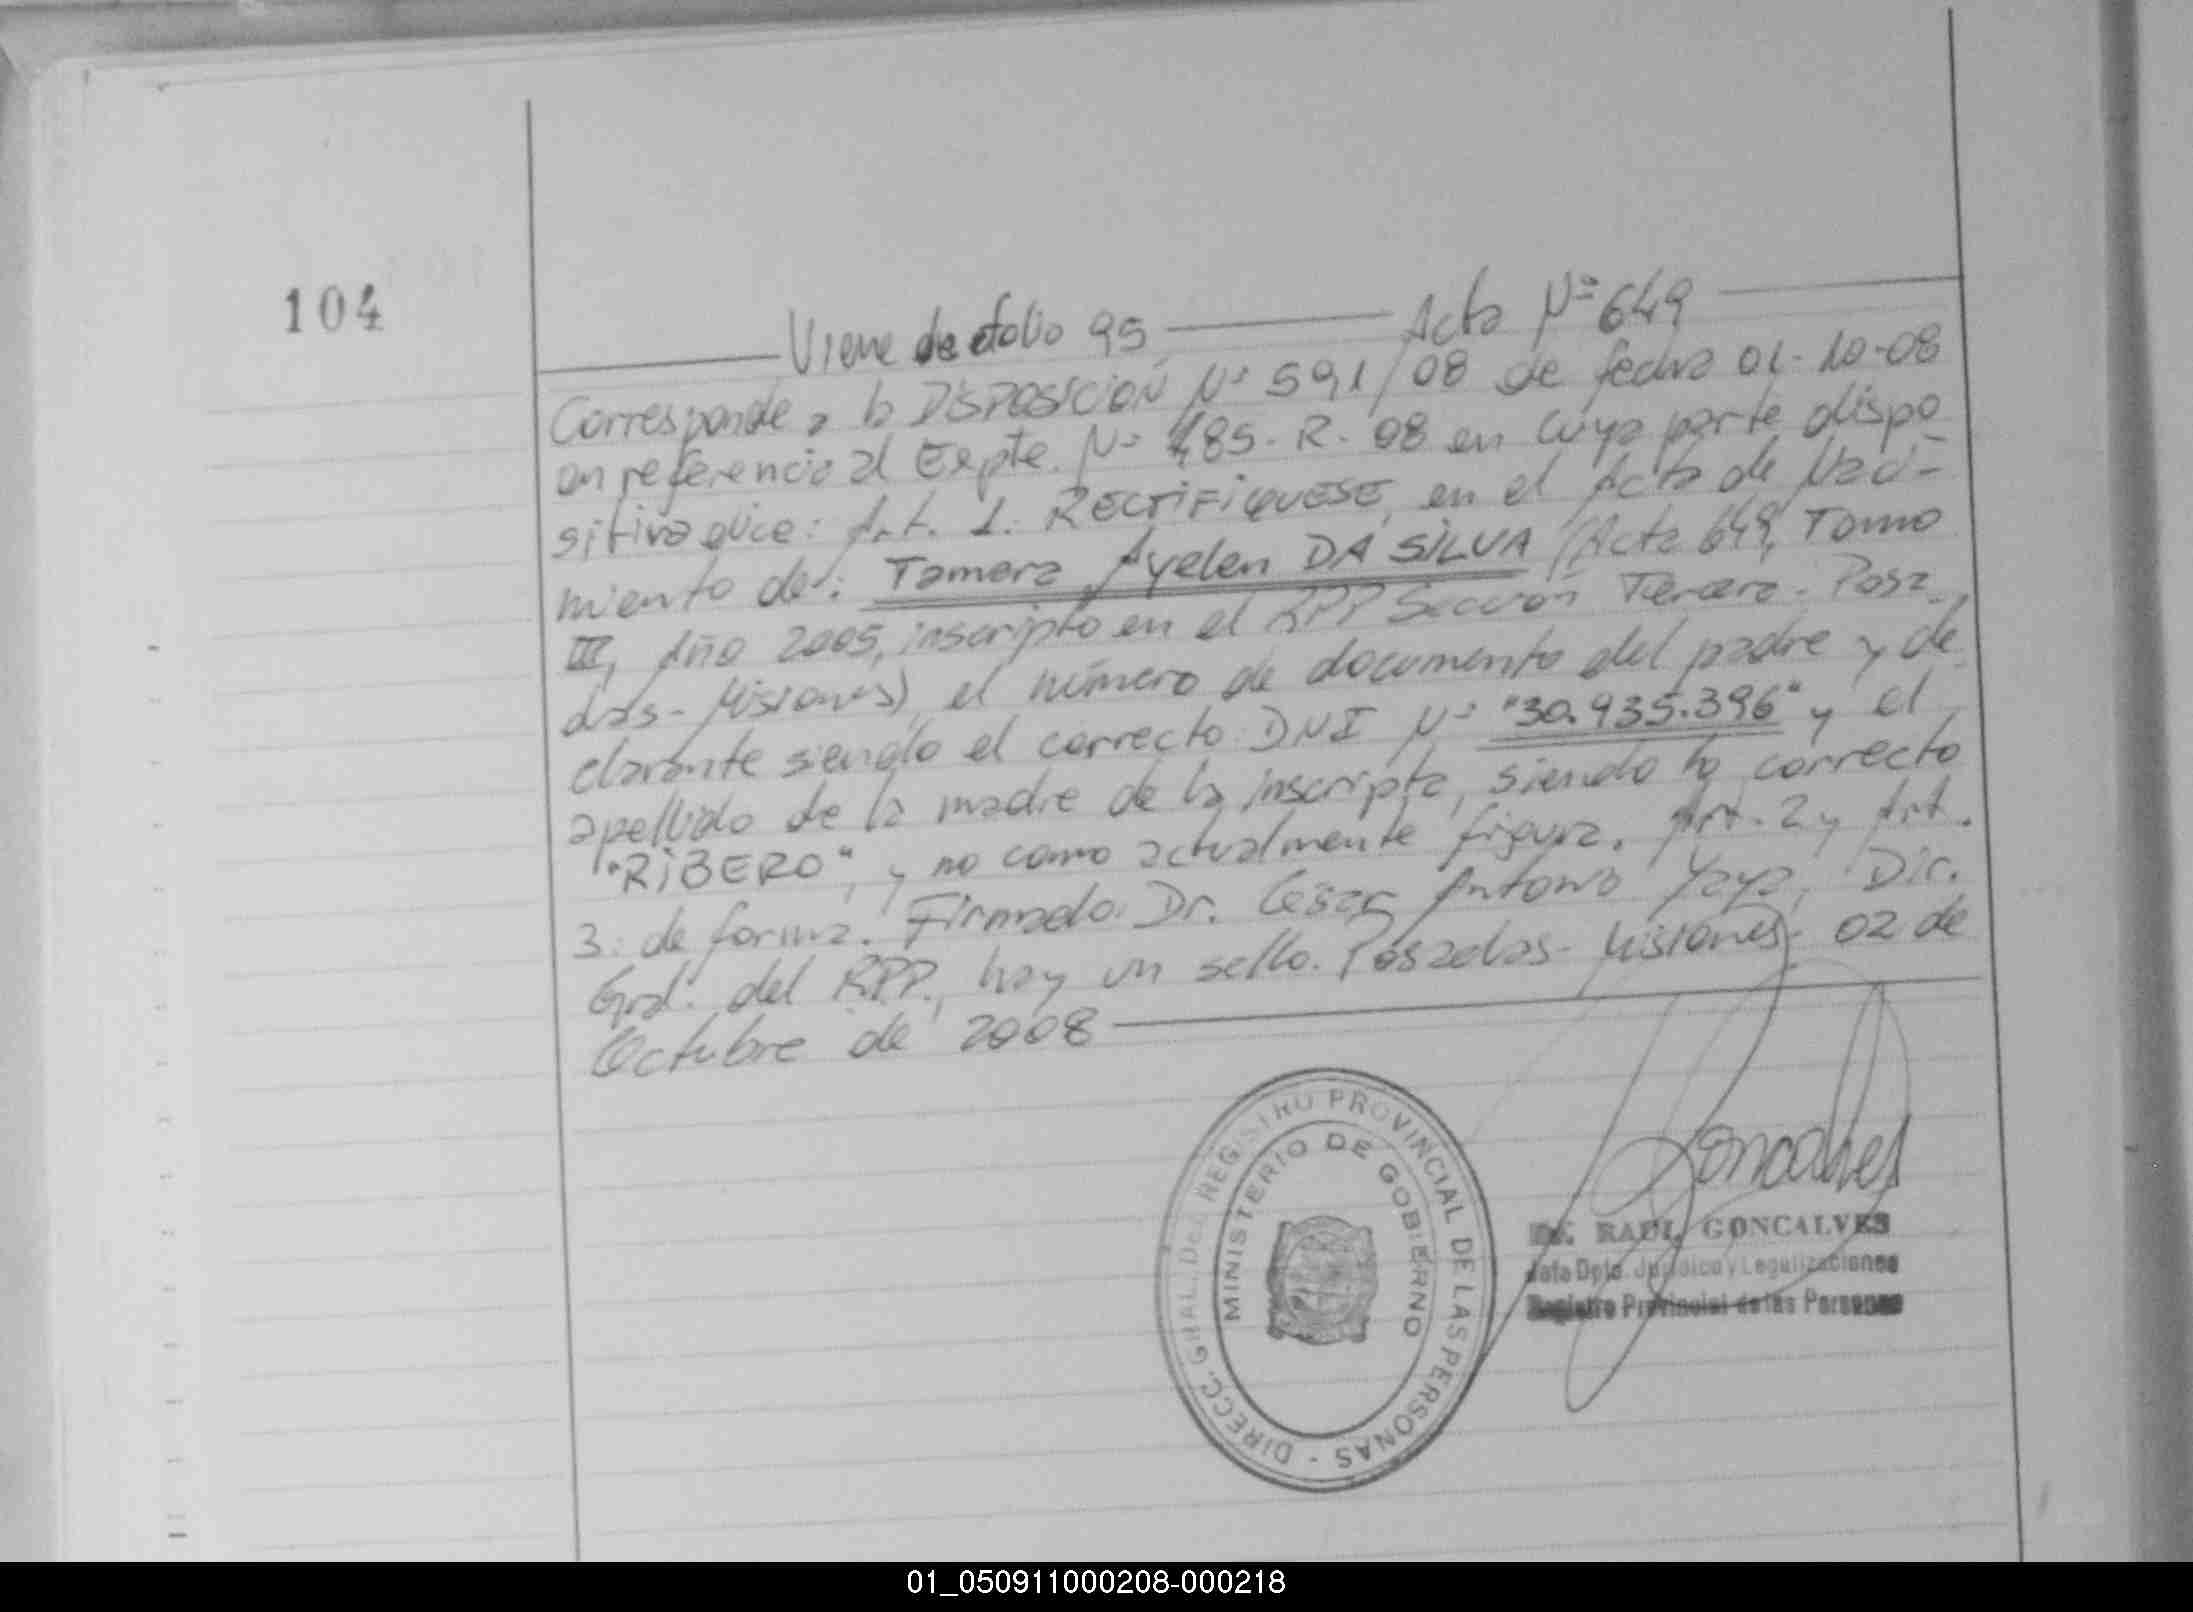 104
Viene de folio 95 Acta Nº 649
Corresponde a la DISPOSICIÓN Nº 591/08 de fecha 01-10-08
en referencia al Expte. Nº 485-R-08 en cuya parte dispo
sitiva dice: Art. 1: RECTIFIQUESE, en el Acta de Naci-
miento de: Tamara Ayelen DA SILVA (Acta 649, Tomo
III, Año 2005, inscripto en el RPP Sección Tercera - Posa-
das - Misiones) el número de documento del padre y de
clarante siendo el correcto DNI Nº "30.935.396" y el
apellido de la madre de la inscripta, siendo lo correcto
"RIBERO", y no como actualmente figura. Art. 2 y Art.
3: de forma. Firmado: Dr. César Antonio Yaya, Dir.
Gral. del RPP., hay un sello. Posadas - Misiones, 02 de
Octubre de 2008
DIRECC. GRAL. DEL REGISTRO PROVINCIAL DE LAS PERSONAS -
MINISTERIO DE GOBIERNO
Goncalves
Dr. RAUL GONCALVES
Jefe Dpto. Jurídico y Legalizaciones
Registro Provincial de las Personas
01_050911000208-000218